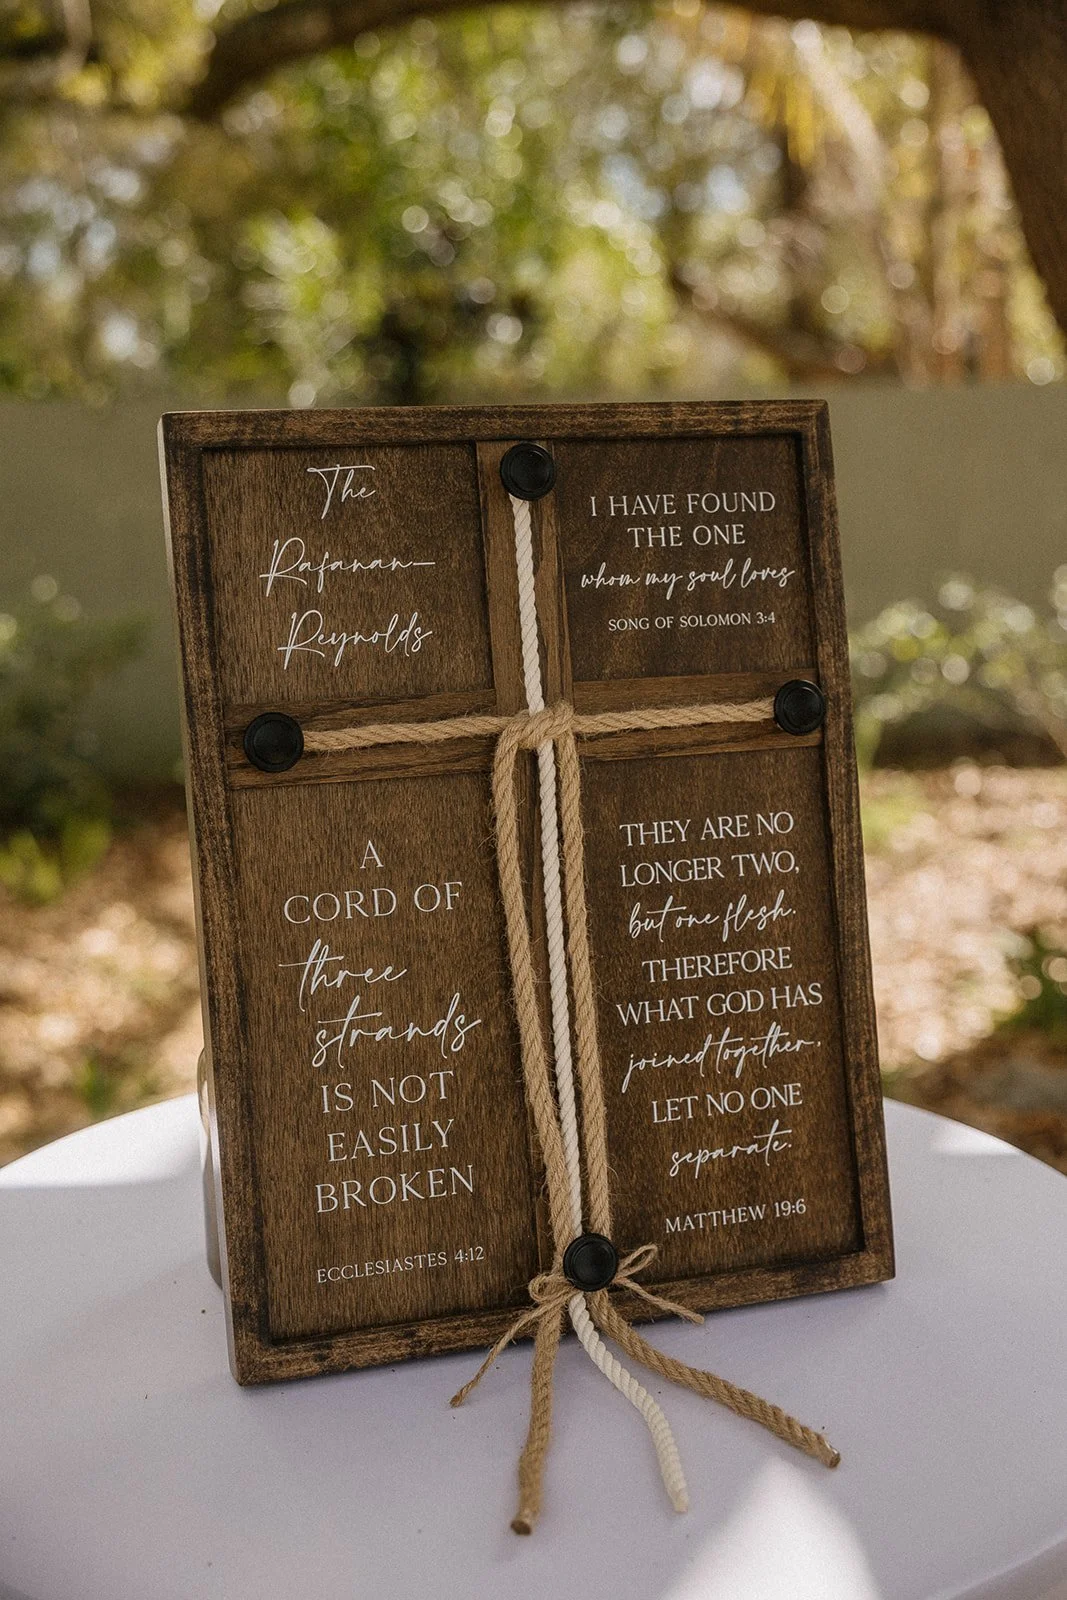 The
Rafanan-
Reynolds
I HAVE FOUND
THE ONE
whom my soul loves
SONG OF SOLOMON 3:4
A
CORD OF
three
strands
IS NOT
EASILY
BROKEN
ECCLESIASTES 4:12
THEY ARE NO
LONGER TWO,
but one flesh.
THEREFORE
WHAT GOD HAS
joined together,
LET NO ONE
separate.
MATTHEW 19:6